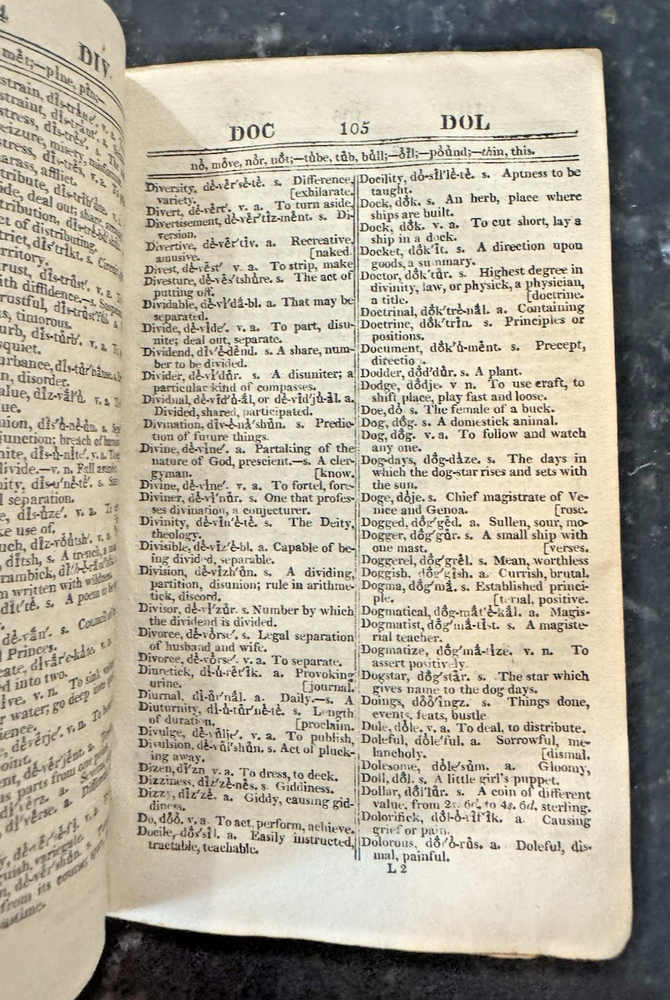 DIV.
DOC 105 DOL
nò, mòve, nòr, nòt;—tùbe, tùb, bùll;—òîl;—pòùnd;—thin, this.
Diversity, dè-vêr'sè-tè. s. Difference,
variety. [exhibarate.
Divert, dè-vêrt'. v. a. To turn aside,
Divertisement, dè-vêr'tîz-mènt. s. Di-
version.
Divertive, dè-vêr'tîv. a. Recreative,
amusive. [naked
Divest, dè-vêst' v. a. To strip, make
Divesture, dè-vês'tshùre. s. The act of
putting off.
Dividable, dè-vî'dâ-bl. a. That may be
separated.
Divide, dè-vîde'. v. a. To part, disu-
nite; deal out, separate.
Dividend, dîv'è-dênd. s. A share, num-
ber to be divided.
Divider, dè-vî'dùr. s. A disuniter; a
particular kind of compasses.
Dividual, dè-vîd'ù-âl, or dè-vîd'jù-âl. a.
Divided, shared, participated.
Divination, dîv-è-nà'shùn. s. Predic-
tion of future things.
Divine, dè-vîne'. a. Partaking of the
nature of God, prescient.—s. A cler-
gyman. [know.
Divine, dè-vîne'. v. a. To fortel, fore-
Diviner, dè-vî'nùr. s. One that profes-
ses divination, a conjecturer.
Divinity, dè-vîn'è-tè. s. The Deity,
theology.
Divisible, dè-vîz'è-bl. a. Capable of be-
ing divided, separable.
Division, dè-vîzh'ùn. s. A dividing,
partition, disunion; rule in arithme-
tick, discord.
Divisor, dè-vî'zùr. s. Number by which
the dividend is divided.
Divorce, dè-vòrse'. s. Legal separation
of husband and wife.
Divorce, dè-vòrse'. v. a. To separate.
Diuretick, dî-ù-rêt'îk. a. Provoking
urine. [journal.
Diurnal, dî-ùr'nâl. a. Daily.—s. A
Diuturnity, dî-ù-tùr'nè-tè. s. Length
of duration. [proclaim.
Divulge, dè-vùlje'. v. a. To publish,
Divulsion, dè-vùl'shùn. s. Act of pluck-
ing away.
Dizen, dî'zn v. a. To dress, to deck.
Dizziness, dîz'zè-nês. s. Giddiness.
Dizzy, dîz'zè. a. Giddy, causing gid-
diness.
Do, dòò. v. a. To act, perform, achieve.
Docile, dòs'sîl. a. Easily instructed,
tractable, teachable.
Docility, dò-sîl'lè-tè. s. Aptness to be
taught.
Dock, dòk. s. An herb, place where
ships are built.
Dock, dòk. v. a. To cut short, lay a
ship in a dock.
Docket, dòk'ît. s. A direction upon
goods, a summary.
Doctor, dòk'tùr. s. Highest degree in
divinity, law, or physick, a physician,
a title. [doctrine.
Doctrinal, dòk'trè-nâl. a. Containing
Doctrine, dòk'trîn. s. Principles or
positions.
Document, dòk'ù-mênt. s. Precept,
direction.
Dodder, dòd'dùr. s. A plant.
Dodge, dòdje. v n. To use craft, to
shift place, play fast and loose.
Doe, dò. s. The female of a buck.
Dog, dòg. s. A domestick animal.
Dog, dòg. v. a. To follow and watch
any one.
Dog-days, dòg-dàze. s. The days in
which the dog-star rises and sets with
the sun.
Doge, dòje. s. Chief magistrate of Ve-
nice and Genoa. [rose.
Dogged, dòg'gêd. a. Sullen, sour, mo-
Dogger, dòg'gùr. s. A small ship with
one mast. [verses.
Doggerel, dòg'grêl. s. Mean, worthless
Doggish. dòg'gîsh. a. Currish, brutal.
Dogma, dòg'mâ. s. Established princi-
ple. [terial, positive.
Dogmatical, dòg-mât'è-kâl. a. Magis-
Dogmatist, dòg'mâ-tîst. s. A magiste-
rial teacher.
Dogmatize, dòg'mâ-tîze. v. n. To
assert positively.
Dogstar, dòg'stâr. s. The star which
gives name to the dog days.
Doings, dòò'îngz. s. Things done,
events, feats, bustle
Dole, dòle. v. a. To deal, to distribute.
Doleful, dòle'ful. a. Sorrowful, me-
lancholy. [dismal.
Dolesome, dòle'sùm. a. Gloomy,
Doll, dòl. s. A little girl's puppet.
Dollar, dòl'lùr. s. A coin of different
value, from 2s. 6d. to 4s. 6d. sterling.
Dolorifick, dòl-ò-rîf'îk. a. Causing
grief or pain.
Dolorous, dòl'ò-rùs. a. Doleful, dis-
mal, painful.
L 2